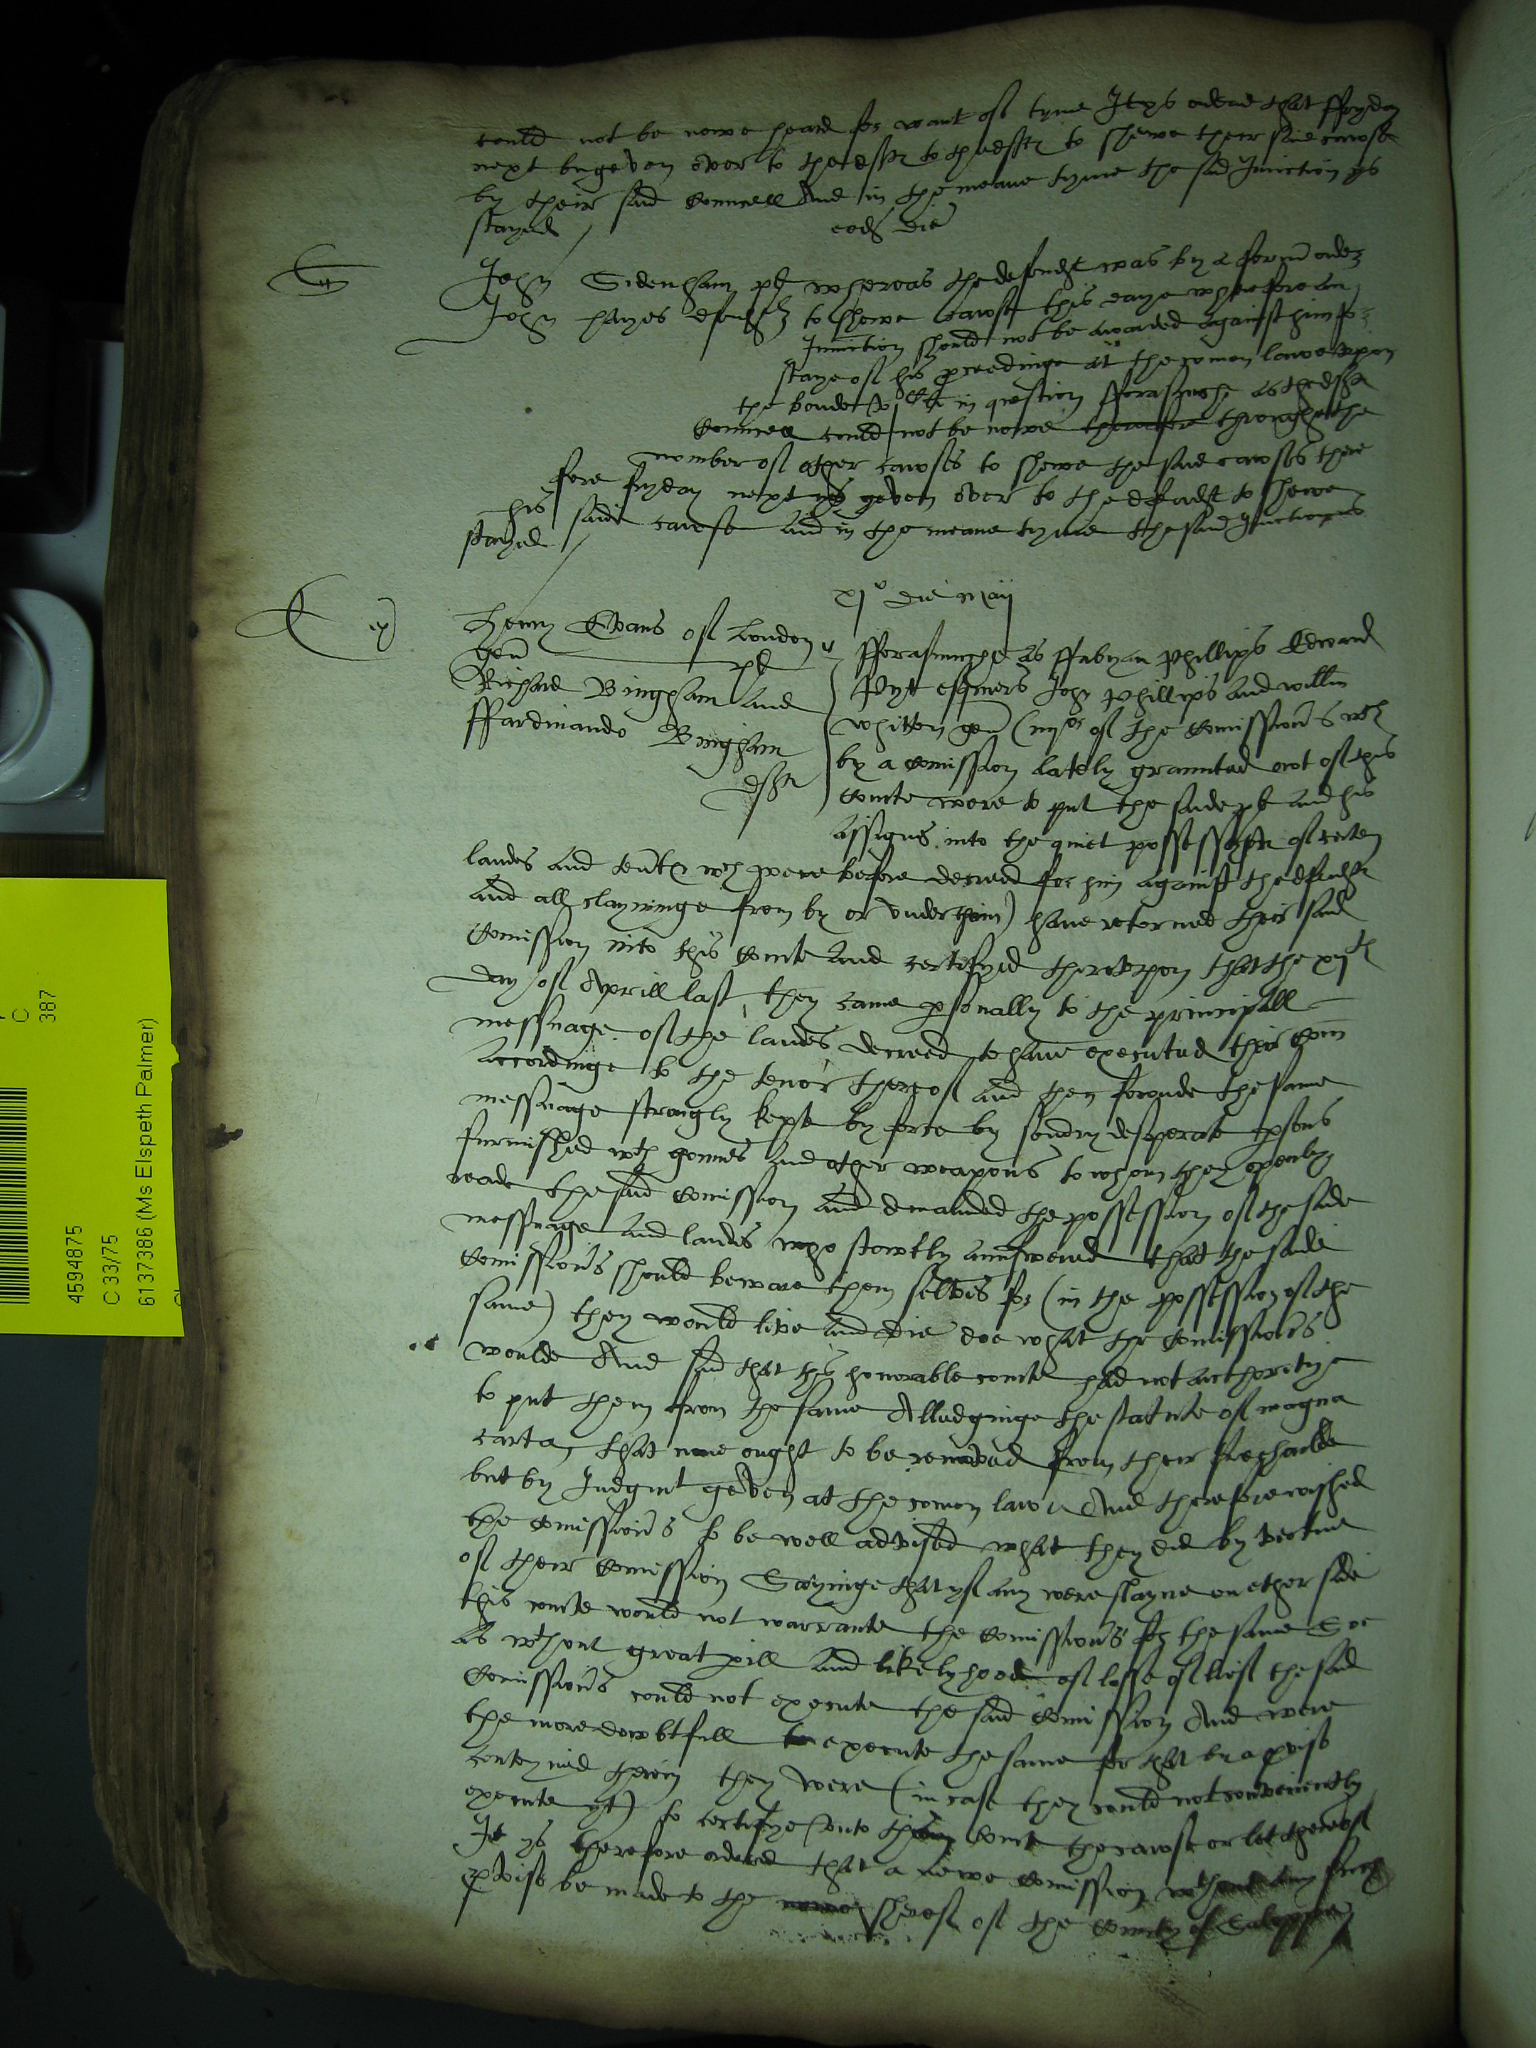 could not be nowe heard for want of tyme It ys ordered that ffryday
next be geven over to thedeftes to thedeftes to shewe their said cawse
by their said Councell And in the meane tyme the said Iniunction ys
stayed
eodem die
John Sidenham pl whereas thedefendt was by a former order
John Hayes defendt to shewe cawse this daye wherefore an
Iniunction should not be awarded against him for
staye of his proceedinge at the comon lawe upon
the bonde in question fforasmuche as thedeftes
Councell could not be nowe therefore throughe the
nomber of other cawses to shewe the said cawses there
fore fryday next ys geven over to the defendt to shewe
his said cawse And in the meane tyme the said Iniunction is
stayed
xjo die Maij
Henry Evans of London
gen pl
Richard Bingham and
ffardinando Bingham
deftes
fforasmuche as ffabyan Phillips Edward
Pyft esquiers John Phillips and willm
Whitton gen (iiijor of the Comissioners wch
by a comission lately graunted owt of this
Courte were to put the saide pl and his
Assignes into the quiet possession of certen
landes and tents wch were before decreed for him against thedefendtes
and all clayminge from by or under them) have retorned their said
Comission into this Courte And certifyed thereupon that the xijth
day of Aprill last they came personally to the principall
messuage of the landes decreed to have executed their Com
accordinge to the tenor thereof and then founde the same
messuage strongly kepte by force by sondry desperate persons
furnished wth gonnes and other weapons to whom they openly
reade the said Comission and demanded the possession of the saide
messuage and landes who stowtly aunswered that the saide
Comissioners should beware them selves for (in the possession of the
same) they would live and die doe what the Comissioners
woulde And said that this honorable courte had not aucthoritye
to put them from the same Alledginge the statute of magna
carta, that none ought to be removed from their freehoulde
but by Iudgmt geven at the comon lawe And therefore wished
the Comissioners to be well advised what they did by vertue
of their Comission Sayinge that yf any were slayne on ether side
this courte would not warrante the Comissioners for the same Soe
as wthout great perill and likelyhood of losse of lief the said
Comissioners could not execute the said Comission And were
the more dowbtfull to execute the same for that by a proviso
conteyned therein they were (in case they could not conveniently
execute yt) to certifye unto this Courte the cawse or let thereof
It ys therefore ordered that a newe Comission wthout any such
proviso be made to the newe Shereff of the County of Saloppe
45948 75
C 33/75
6137386 (Ms Elspeth Palmer)
C
387